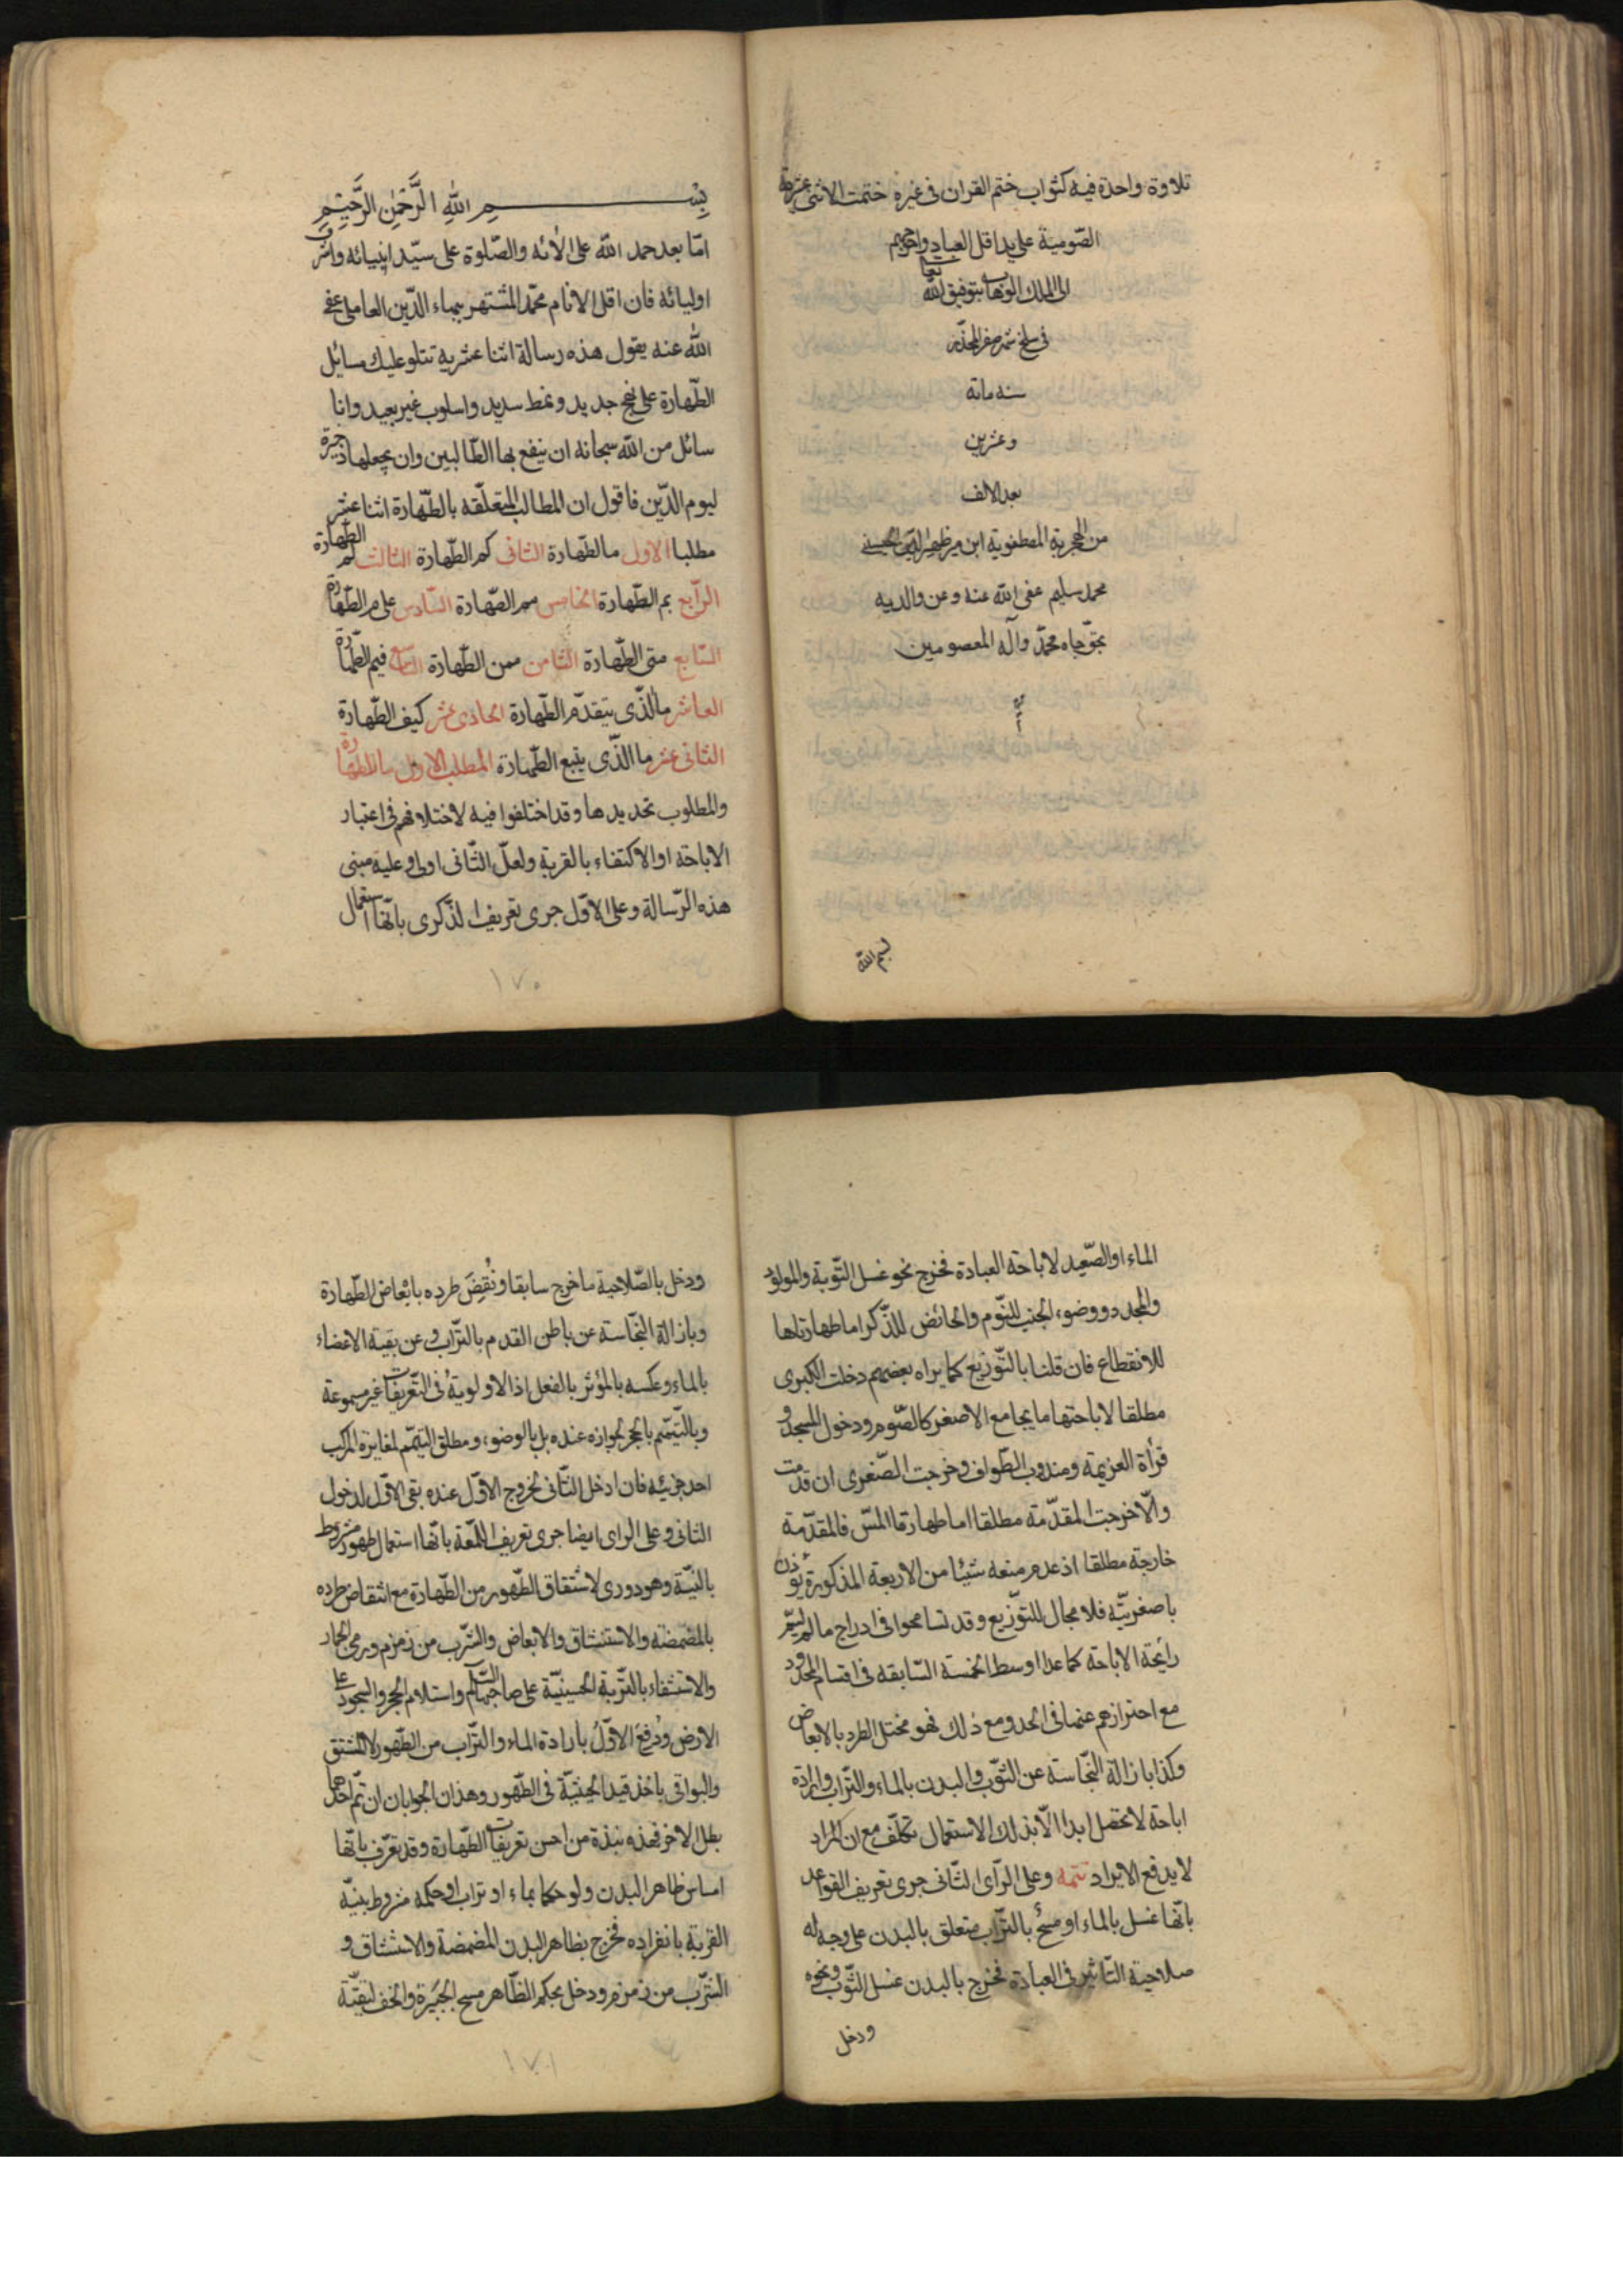 تلاوة واحدة فيه كثواب ختم القران فى غيره ختمت الاثنى عشرية
الصّومية على يد اقل العباد واحوجهم
الى الملك الوهاب بتوفيق الله تعا
فى سلخ شهر صفر
سنه مائة
وعشرين
بعد الالف
من الهجرية المصطفوية ابن مير ظهير الدين الحسينى
محمد سليم عفى الله عنه وعن والديه
بحقّ جاه محمّد وآله المعصومين
بسم الله
بسم الله الرَّحمٰن الرَّحيم
امّا بعد حمد الله على الأئه والصّلوة على سيّد انبيائه واشرف
اوليائه فان اقل الانام محمّد المشتهر ببهاء الدّين العاملى عفى
الله عنه يقول هذه رسالة اثنا عشرية تتلو عليك مسائل
الطّهارة على نهج جديد ونمط سديد واسلوب غير بعيد وانا
سائل من الله سبحانه ان ينفع بها الطّالبين وان يجعلها ذخيرة
ليوم الدّين فاقول ان المطالب المتعلّقه بالطّهارة اثنا عشر
مطلبا الاول ما الطّهارة الثانى كم الطّهارة الثالث لم الطّهارة
الرّابع بم الطّهارة الخامس مم الطّهارة السّادس على م الطّهارة
السّابع متى الطّهارة الثّامن ممن الطّهارة التاسع فيم الطّهارة
العاشر ما الّذى يتقدّم الطّهارة الحادى عشر كيف الطّهارة
الثانى عشر ما الّذى يتبع الطّهارة المطلب الاول ما الطهارة
والمطلوب تحديدها وقد اختلفوا فيه لاختلافهم فى اعتبار
الاباحة او الاكتفاء بالقربة ولعلّ الثّانى اولى وعليه مبنى
هذه الرّسالة وعلى الاوّل جرى تعريف الذّكرى بانّها استعمال
١٧٠
الماء او الصّعيد لاباحة العبادة فخرج نحو غسل التّوبة والمولود
والمجدد ووضوء الجنب للنّوم والحائض للذّكر اما طهارتاها
للانقطاع فان قلنا بالتّوزيع كما يراه بعضهم دخلت الكبرى
مطلقا لاباحتها ما يجامع الاصغر كالصّوم ودخول المسجد و
قرأة العزيمة ومندوب الطّواف وخرجت الصّغرى ان قدمت
والّا خرجت المقدّمة مطلقا اما طهارتا المسّ فالمقدّمة
خارجة مطلقا اذ عدم منعه شيئا من الاربعة المذكورة تؤذن
باصغريّته فلا مجال للتّوزيع وقد تسامحوا فى ادراج ما لم يشمّ
رائحة الاباحة كما عدا اوسط الخمسة السّابقه فى اقسام المحدود
مع احترازهم عنها فى الحد ومع ذلك فهو مختل الطرد بالابعاض
وكذا بازالة النّجاسة عن الثّوب والبدن بالماء والتّراب وارادة
اباحة لا تحصل ابدا الّا بذلك الاستعمال تكلّف مع ان المراد
لا يدفع الايراد تتمه وعلى الرّاى الثّانى جرى تعريف القواعد
بانّها غسل بالماء او مسحٌ بالتّراب متعلق بالبدن على وجه له
صلاحية التّاثير فى العبادة فخرج بالبدن غسل الثّوب ونحوه
ودخل
ودخل بالصّلاحية ما خرج سابقا ونُقِضَ طرده بابْعاض الطّهارة
وبازالة النجّاسة عن باطن القدم بالتّراب وعن بقية الاعضاء
بالماء وعكسه بالمؤثر بالفعل اذ الاولوية فى التّعريفات غير مسموعة
وبالتّيمّم بالحجر لجوازه عنده بل بالوضوء ومطلق التيمّم لمغايرة المركب
احد جزئيه فان ادخل الثّانى لخروج الاوّل عنده بقى الاوّل لدخول
الثانى وعلى الراى ايضا جرى تعريف اللّمعة بانّها استعمال طهور مشروط
بالنيّة وهو دورى لاشتقاق الطّهور من الطّهارة مع انتقاض طرده
بالمضمضة والاستنشاق والابعاض والشّرب من زمزم ورمى الجمار
والاستشفاء بالتّربة الحسينيّة على صاحبها السّلام واستلام الحجر والسّجود على
الارض ودُفِعَ الاوّلُ بارادة الماء والتّراب من الطّهور لا المشتق
والبواقى باخذ قيد الحيثيّة فى الطّهور وهذان الجوابان ان تمّ احدهما
بطل الاخر فهذه نبذة من احسن تعريفات الطّهارة وقد تعرّف بانّها
امساس ظاهر البدن ولو حكما بماء او تراب او حكمه مشروط بنيّة
القربة بانفراده فخرج بظاهر البدن المضمضة والاستنشاق و
الشّرب من زمزم ودخل بحكم الظّاهر مسح الجَبيرة والخف لتقيّة
١٧١